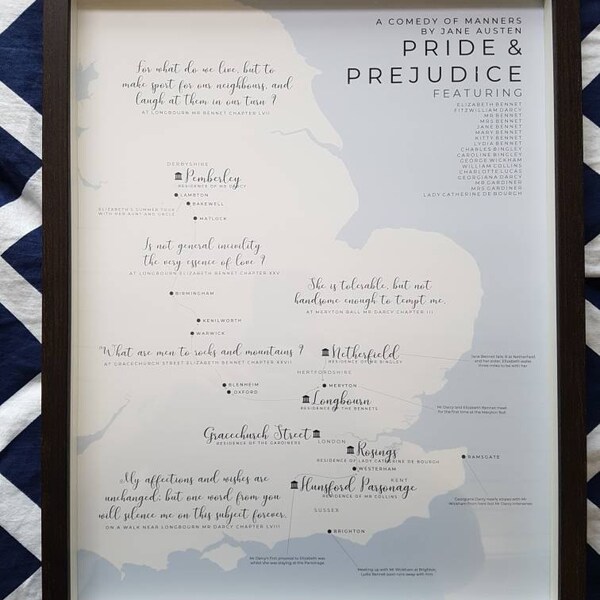 A COMEDY OF MANNERS
BY JANE AUSTEN
PRIDE &
PREJUDICE
FEATURING
ELIZABETH BENNET
FITZWILLIAM DARCY
MR BENNET
MRS BENNET
JANE BENNET
MARY BENNET
KITTY BENNET
LYDIA BENNET
CHARLES BINGLEY
CAROLINE BINGLEY
GEORGE WICKHAM
WILLIAM COLLINS
CHARLOTTE LUCAS
GEORGIANA DARCY
MR GARDINER
MRS GARDINER
LADY CATHERINE DE BOURGH
For what do we live, but to
make sport for our neighbours, and
laugh at them in our turn ?
AT LONGBOURN MR BENNET CHAPTER LVII
DERBYSHIRE
Pemberley
RESIDENCE OF MR DARCY
LAMBTON
BAKEWELL
ELIZABETH'S SUMMER TOUR
WITH HER AUNT AND UNCLE
MATLOCK
Is not general incivility
the very essence of love ?
AT LONGBOURN ELIZABETH BENNET CHAPTER XXV
She is tolerable, but not
handsome enough to tempt me.
AT MERYTON BALL MR DARCY CHAPTER III
BIRMINGHAM
KENILWORTH
WARWICK
"What are men to rocks and mountains ?
AT GRACECHURCH STREET ELIZABETH BENNET CHAPTER XXVII
Netherfield
RESIDENCE OF MR BINGLEY
Jane Bennet falls ill at Netherfield
and her sister, Elizabeth walks
three miles to be with her
HERTFORDSHIRE
BLENHEIM
OXFORD
MERYTON
Longbourn
RESIDENCE OF THE BENNETS
Mr Darcy and Elizabeth Bennet meet
for the first time at the Meryton Ball
Gracechurch Street
RESIDENCE OF THE GARDINERS
LONDON
Rosings
RESIDENCE OF LADY CATHERINE DE BOURGH
WESTERHAM
RAMSGATE
KENT
Hunsford Parsonage
RESIDENCE OF MR COLLINS
My affections and wishes are
unchanged, but one word from you
will silence me on this subject forever.
ON A WALK NEAR LONGBOURN MR DARCY CHAPTER LVIII
Georgiana Darcy nearly elopes with Mr
Wickham
SUSSEX
BRIGHTON
Mr Darcy's first proposal to Elizabeth was
whilst she was staying at the Parsonage.
Meeting up with Mr Wickham at Brighton,
Lydia Bennet soon runs away with him.